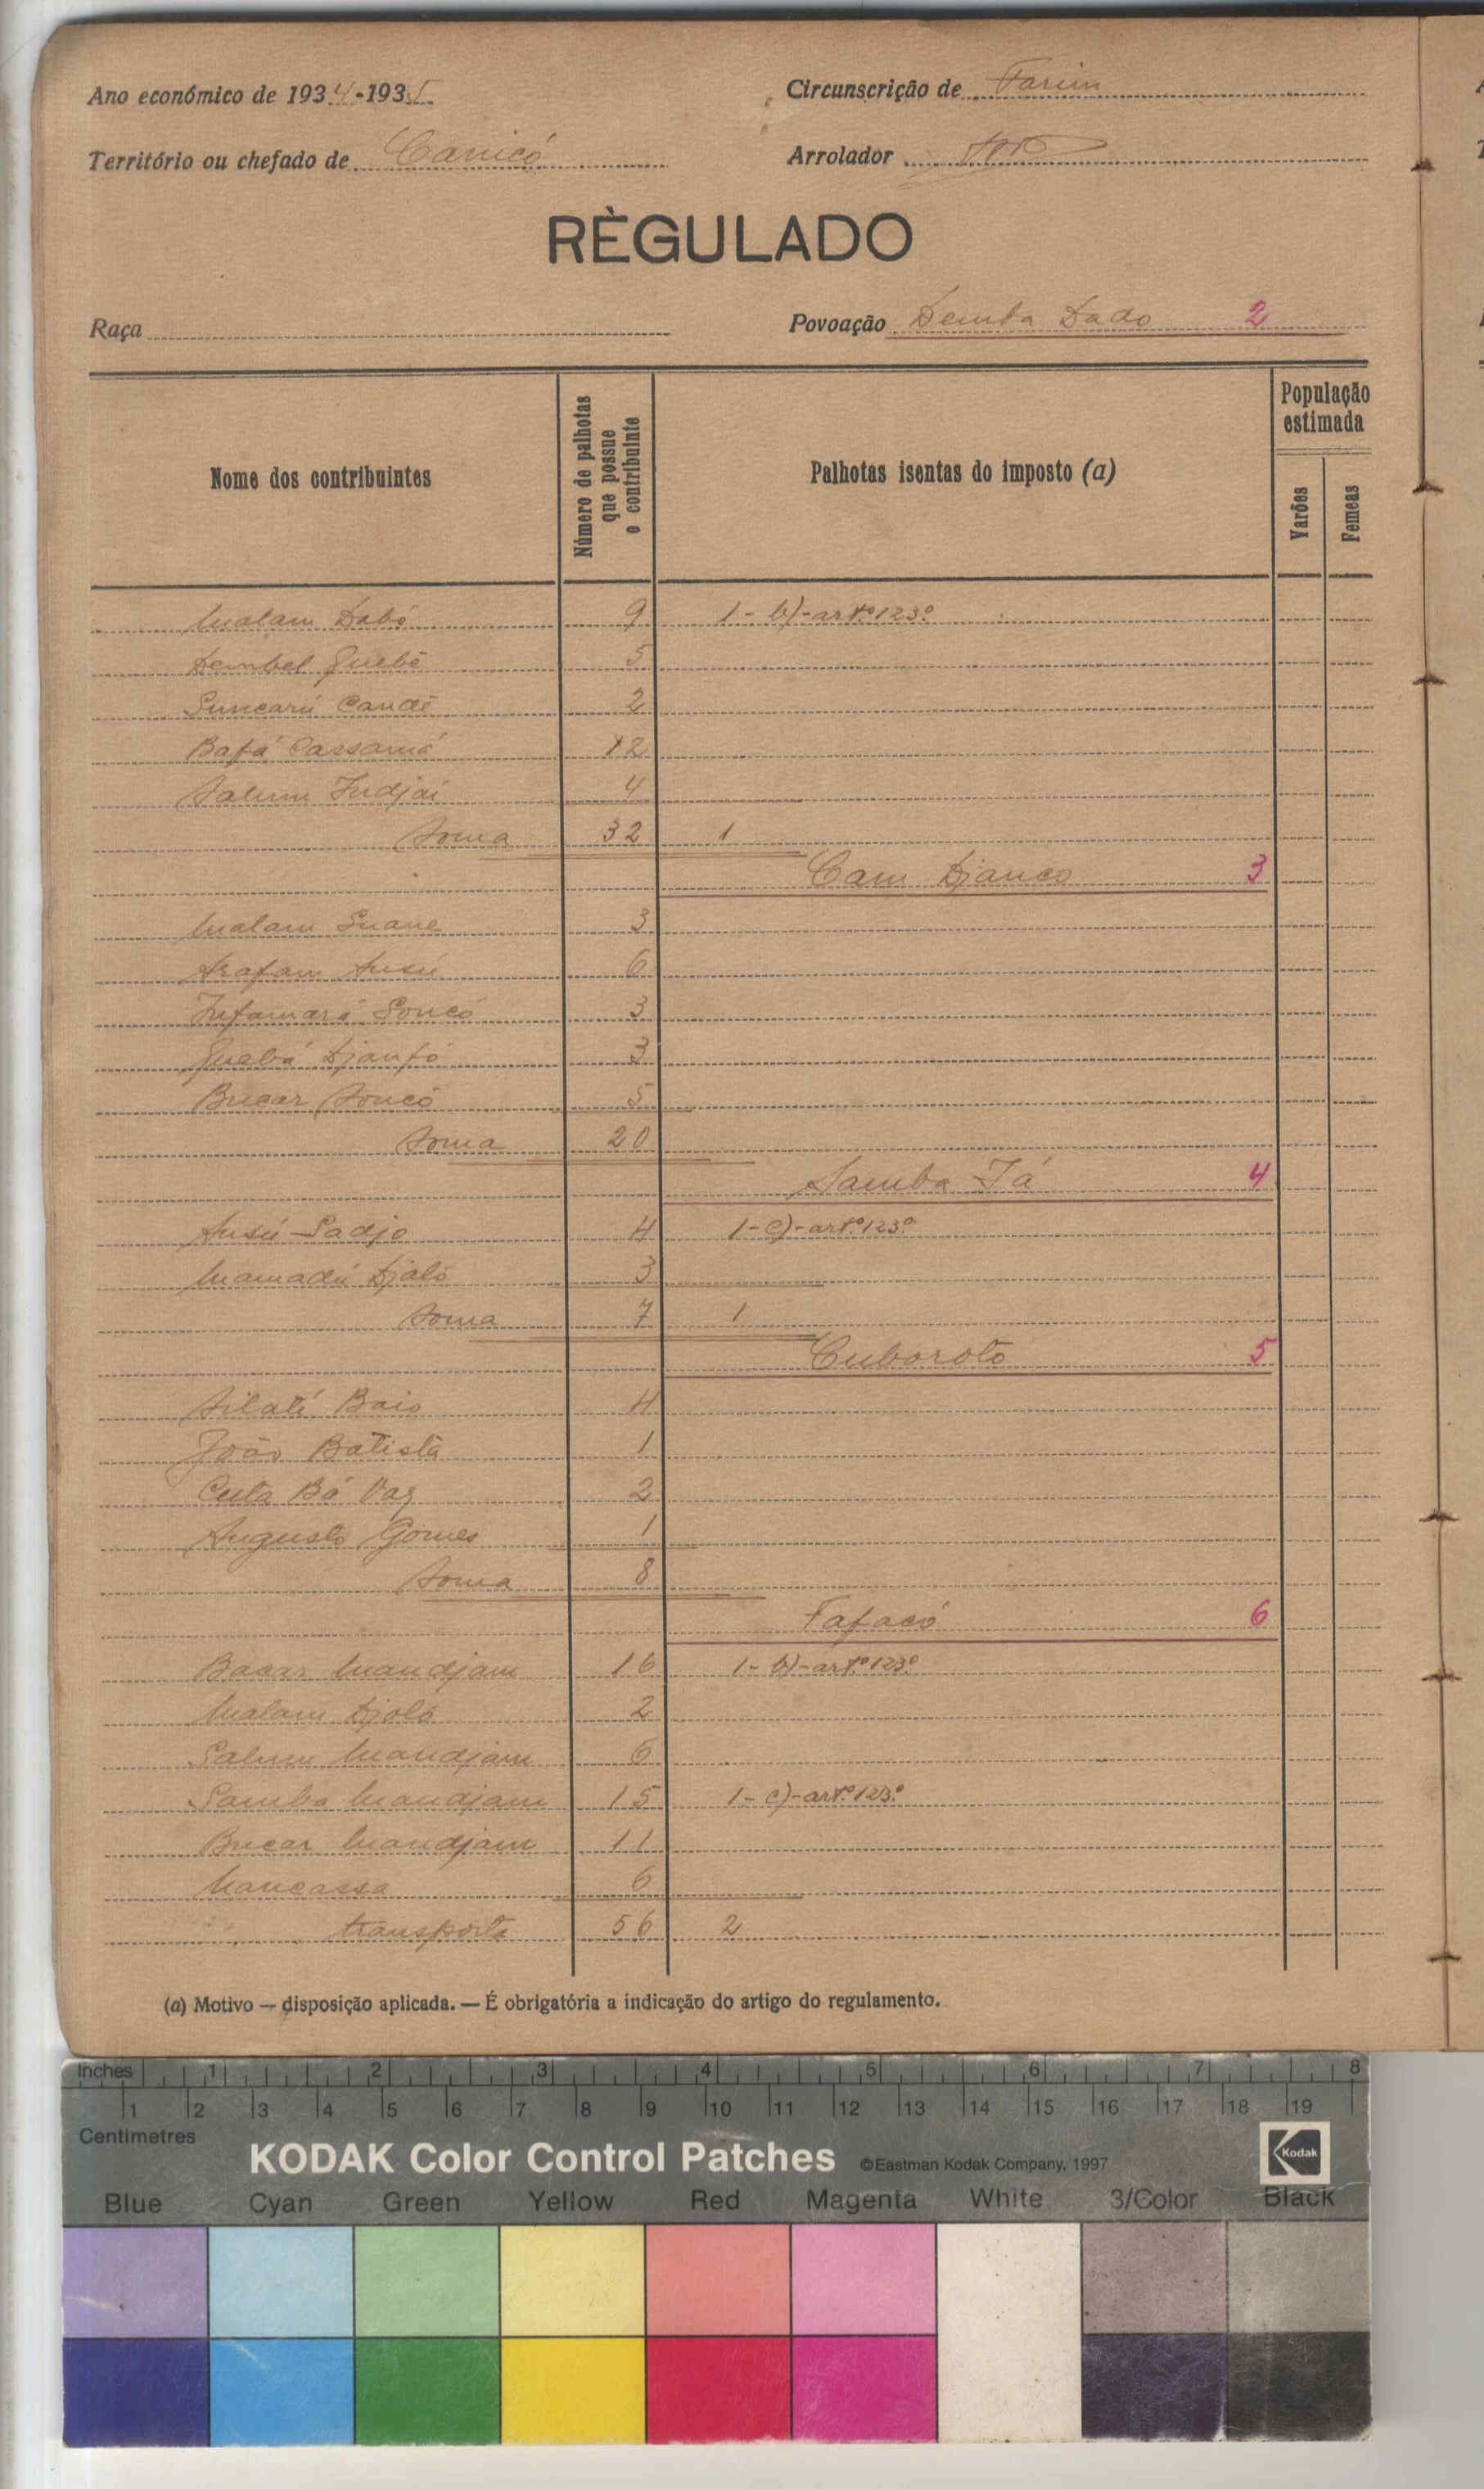 Ano económico de 1934-1935
Circunscrição de Farim
Território ou chefado de Canicó
Arrolador
RÈGULADO
Raça
Povoação Demba Dado 2
Nome dos contribuintes
Número de palhotas que possue o contribuinte
Palhotas isentas do imposto (a)
População estimada
Varões
Femeas
Malam Dabó 9 1-b)-artº123º
Dembel Quebê 5
Suncarú Candê 2
Bafá Cassamá 12
Salum Indjai 4
Soma 32 1
Cam Djanco 3
Malam Suane 3
Arafam Ansú 6
Infamará Soncó 3
Quebá Djanfó 3
Bucar Soncó 5
Soma 20
Samba Tá 4
Ansú Sadjo 4 1-c)-artº123º
Mamadú Djaló 3
Soma 7 1
Cuboroto 5
Silati Baio 4
João Batista 1
Cuta Bó Vaz 2
Augusto Gomes 1
Soma 8
Fafacó 6
Bacar Mandjam 16 1-b)-artº123º
Malam Djoló 2
Salum Mandjam 6
Samba Mandjam 15 1-c)-artº123º
Bucar Mandjam 11
Mancassa 6
transporta 56 2
(a) Motivo — disposição aplicada. — É obrigatória a indicação do artigo do regulamento.
Inches 1 2 3 4 5 6 7 8
1 2 3 4 5 6 7 8 9 10 11 12 13 14 15 16 17 18 19
Centimetres
KODAK Color Control Patches ©Eastman Kodak Company, 1997 Kodak
Blue Cyan Green Yellow Red Magenta White 3/Color Black